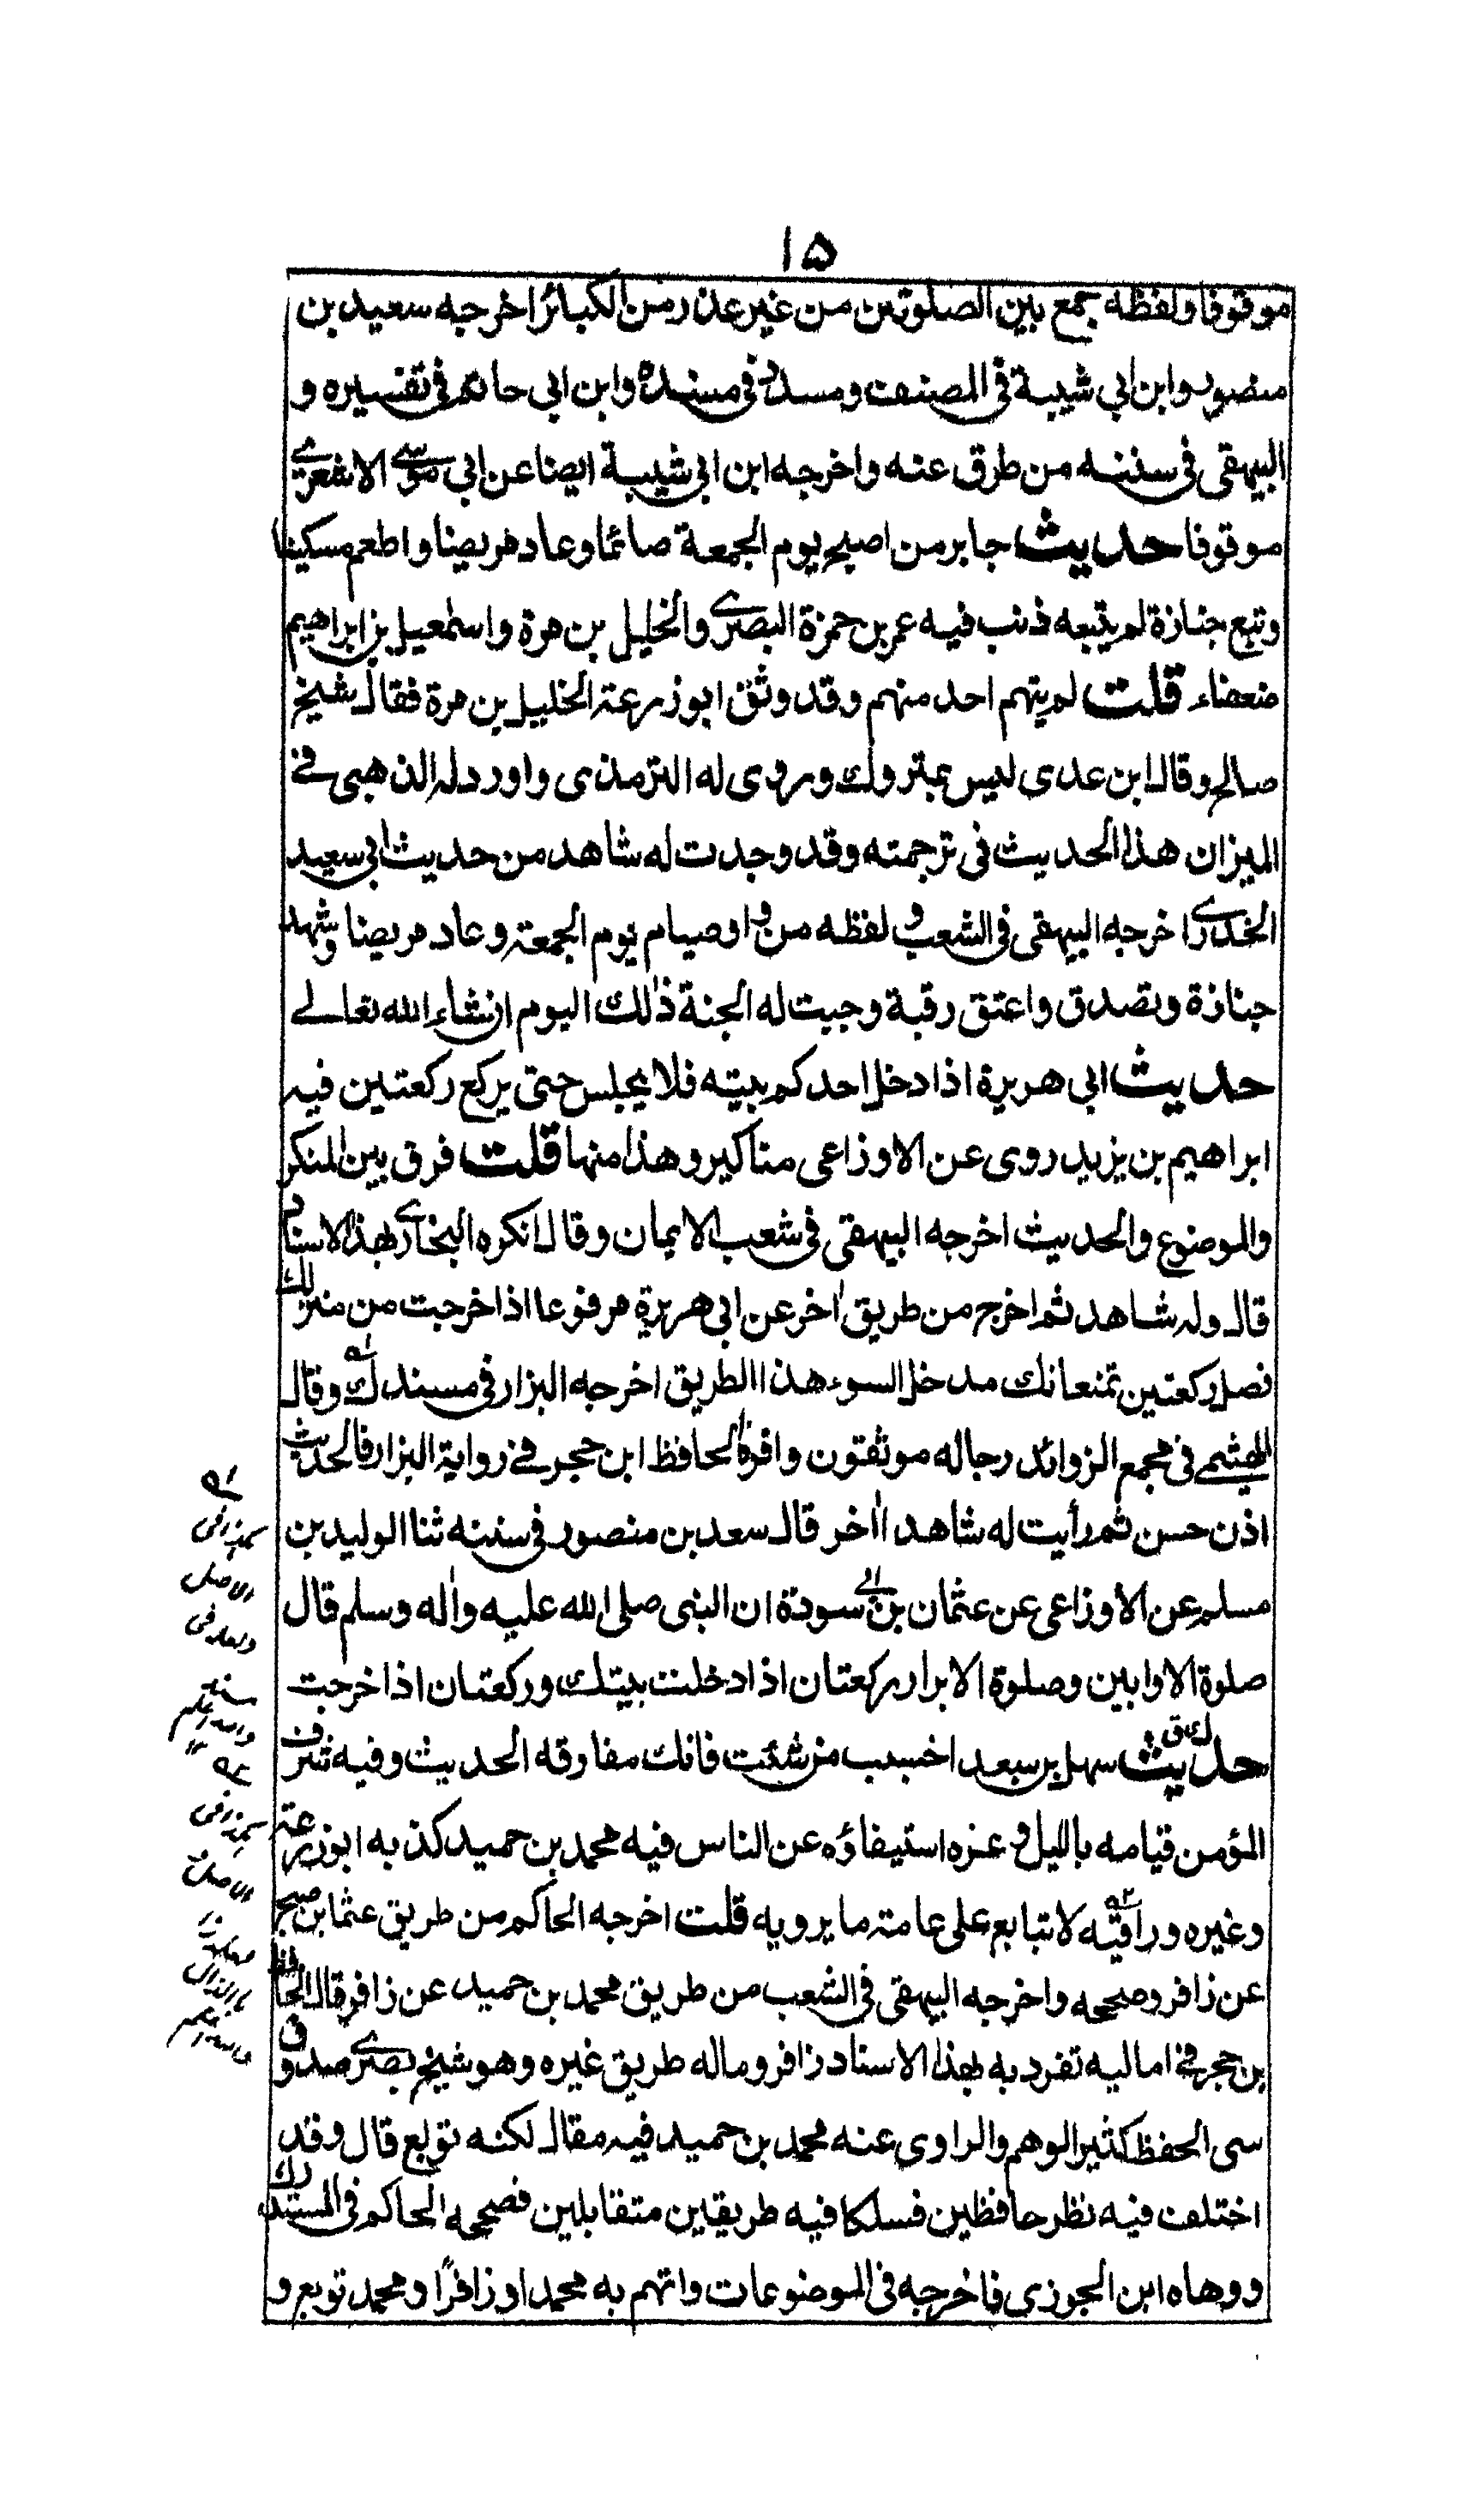 ١٥
موقوفا ولفظه جمع بين الصلوتين من غير عذر من الكبائر اخرجه سعيد بن
منصور وابن ابي شيبة في المصنف ومسدد في مسنده وابن ابي حاتم في تفسيره و
البيهقي في سننه من طرق عنه واخرجه ابن ابي شيبة ايضا عن ابي موسى الاشعري
موقوفا حديث جابر من اصبح يوم الجمعة صائما وعاد مريضا واطعم مسكينا
وتبع جنازة لم يتبعه ذنب فيه عمر بن حمزة البصري والخليل بن مرة واسمعيل بن ابراهيم
ضعفاء قلت لم يتهم احد منهم وقد وثق ابو زرعة الخليل بن مرة فقال شيخ
صالح وقال ابن عدى ليس بمتروك وروى له الترمذى واورد له الذهبى في
الميزان هذا الحديث في ترجمته وقد وجدت له شاهد من حديث ابي سعيد
الخدري اخرجه البيهقى في الشعب و لفظه من وا وصيام يوم الجمعة وعاد مريضا وشهد
جنازة وتصدق واعتق رقبة وجبت له الجنة ذلك اليوم انشاء الله تعالى
حديث ابى هريرة اذا دخل احدكم بيته فلا يجلس حتى يركع ركعتين فيه
ابراهيم بن يزيد روى عن الاوزاعى مناكير وهذا منها قلت فرق بين المنكر
والموضوع والحديث اخرجه البيهقى في شعب الايمان وقال انكره البخاري بهذا الاسناد
قال وله شاهد ثم اخرج من طريق اخر عن ابى هريرة مرفوعا اذا خرجت من منزلك
فصل ركعتين تمنعانك مدخل السوء هذا الطريق اخرجه البزار في مسندك وقال
الهيثمي في مجمع الزوائد رجاله موثقون واقره الحافظ ابن حجر في زواية البزار فالحديث
اذن حسن ثم رأيت له شاهدا اخر قال سعد بن منصور في سننه ثنا الوليد بن
مسلم عن الاوزاعى عن عثمان بن ابي سودة ان النبى صلى الله عليه واله وسلم قال
صلوة الاوابين وصلوة الابرار ركعتان اذا دخلت بيتك وركعتان اذا خرجت
حديث سهل بن سعد احبب من شئت فانك مفارقه الحديث وفيه شرف
المؤمن قيامه بالليل و عزه استيفاؤه عن الناس فيه محمد بن حميد كذبه ابو زرعة
وغيره وراقيه لا تتابع على عامة ما يرويه قلت اخرجه الحاكم من طريق عثما بن صبح
عن زافر وصححه واخرجه البيهقى في الشعب من طريق محمد بن حميد عن زافر قال الحافظ
بن حجر في اماليه تفرد به بهذا الاسناد زافر وماله طريق غيره وهو شيخ بصري صدوق
سى الحفظ كثير الوهم والراوى عنه محمد بن حميد فيه مقال لكنه توبع قال وقد
اختلف فيه نظر حافظين فسلكا فيه طريقين متقابلين فصححه الحاكم في المستدرك
ووهاه ابن الجوزى فاخرجه في الموضوعات واتهم به محمدا وزافرًا ومحمد توبع و